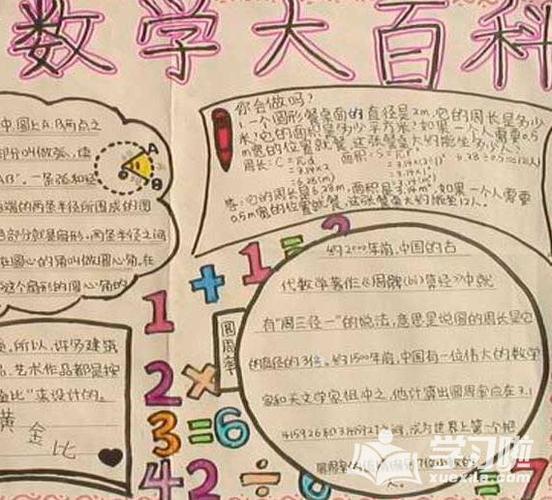 数学大百科
中,圆上A、B两点之
部分叫做弧,读
AB”。一条弧和经
端的两条半径所围成的图
部分就是扇形,两条半径之间
在圆心的角叫做圆心角。在
这个扇形的圆心角的
A
B
O
你会做吗?
一个圆形餐桌面的直径是2m,它的周长是多少
米?它的面积是多少平方米?如果一个人需要0.5
m宽的位置就餐,这张餐桌大约能坐多少人?
周长:C=πd 面积:S=πr²
=3.14×2
=6.28(m)
6.28÷0.5≈12(人)
答:它的周长是6.28m,面积是3.14m²,如果一个人需要
0.5m宽的位置就餐,这张餐桌大约能坐12人。
1+1=2
2×
3=6
42÷6=7
圆周率
约2000年前,中国的古
代数学著作《周髀(bì)算经》中就
有“周三径一”的说法,意思是说圆的周长是它
的直径的3倍。约1500年前,中国有一位伟大的数学
家和天文学家祖冲之,他计算出圆周率应在3.1
415926和3.1415927之间,成为世界上第一个把
圆周率的值精确到7位小数的人
所以,许多建筑
艺术作品都是按
金比”来设计的。
黄金比
学习啦
xuexila.com